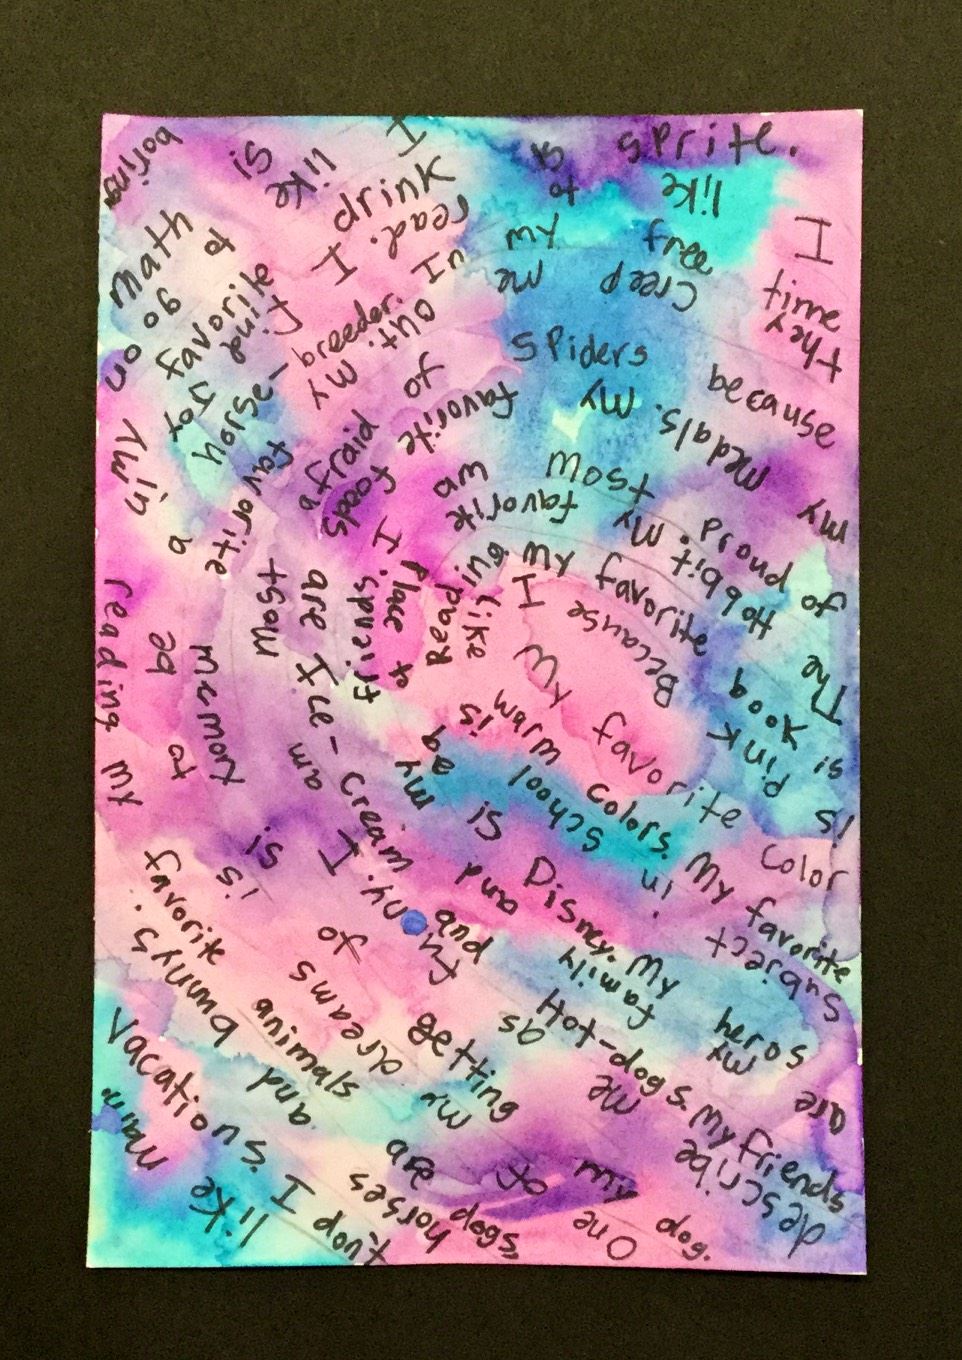 My favorite color
is pink Because I like
warm colors. My favorite
subject in school is Reading.
My favorite book is The Hobbit.
My favorite place to be is Disney.
My heros are my family and my
friend's. I am most proud of my medals.
My favorite foods are Ice-cream and Hot-dogs.
My friends describe me as funny.
I am most afraid of Spiders because they creep me out.
My favorite memory is getting my dog.
One of my dreams is to be a horse-breeder.
In my free time I like to read.
I find math boring
My favorite animals are dogs, horses and bunnys.
I like to go on Vacations.
My favorite drink is sprite.
I don't like mean
reading